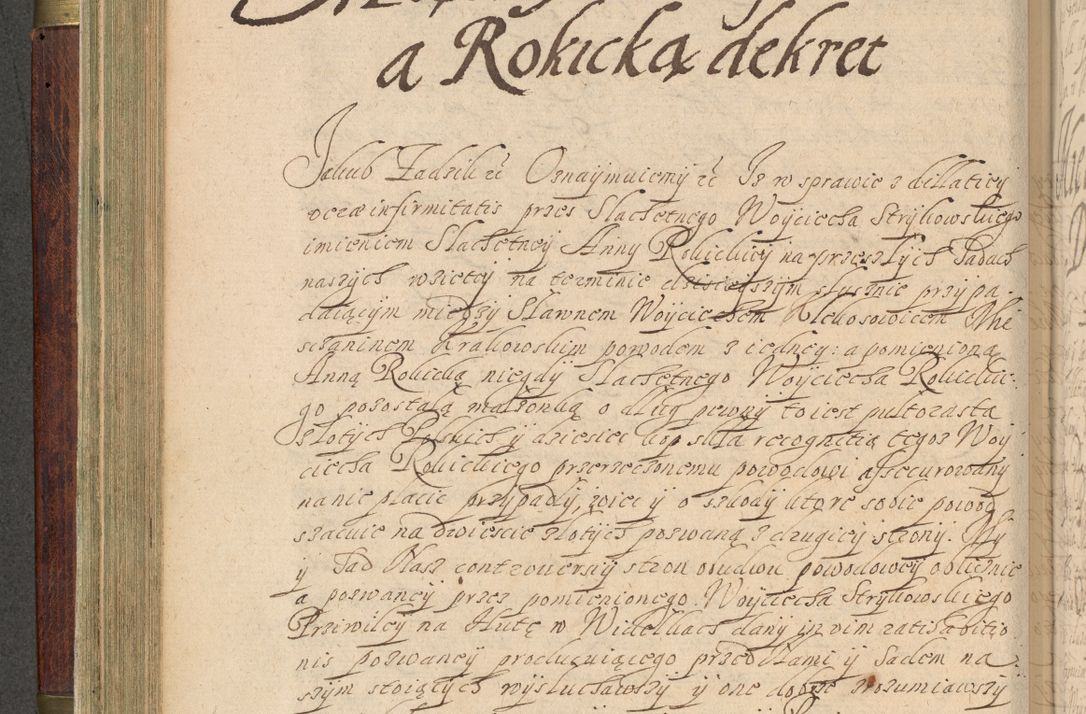 a Rokicką dekret
Jakub Zadzik etc Oznaymuiemy etc Iz w sprawie z dillatiey
verae infirmitatis przes Slachetnego Woyciecha Strykowskiego
imieniem Slachetney Anny Rokickiey na przeszłych Sadach
naszych wzietey na terminie dzisieyszym słusznie przypa-
daiącym między Sławnem Woyciechem Mie
sczaninem Krakowskim powodem z iedney: a pomienioną
Anną Rokicką niegdy Slachetnego Woyciecha Rokickie-
go pozostałą małżonką o dług pewny to iest pułtorasta
złotych Polskich y dziesiec kop sola recognitią tegoz Woy
ciecha Rokickiego przerzeczonemu powodowi assecurowany
na nie płacie przypadły, wiec y o szkody ktore sobie powod
szacuie na dwiescie złotych pozwaną z drugiey strony. My
y Sad Nasz controuersiy stron obudwu powodowey oblicznie
a pozwaney przez pomienionego Woyciecha Strykowskiego
Przywiley na Hutę w Widełkach dany in vim
nis pozwaney producuiącego przed Nami y Sadem na-
szym stoiących wysłuchawszy y one dobrze zrozumiawszy